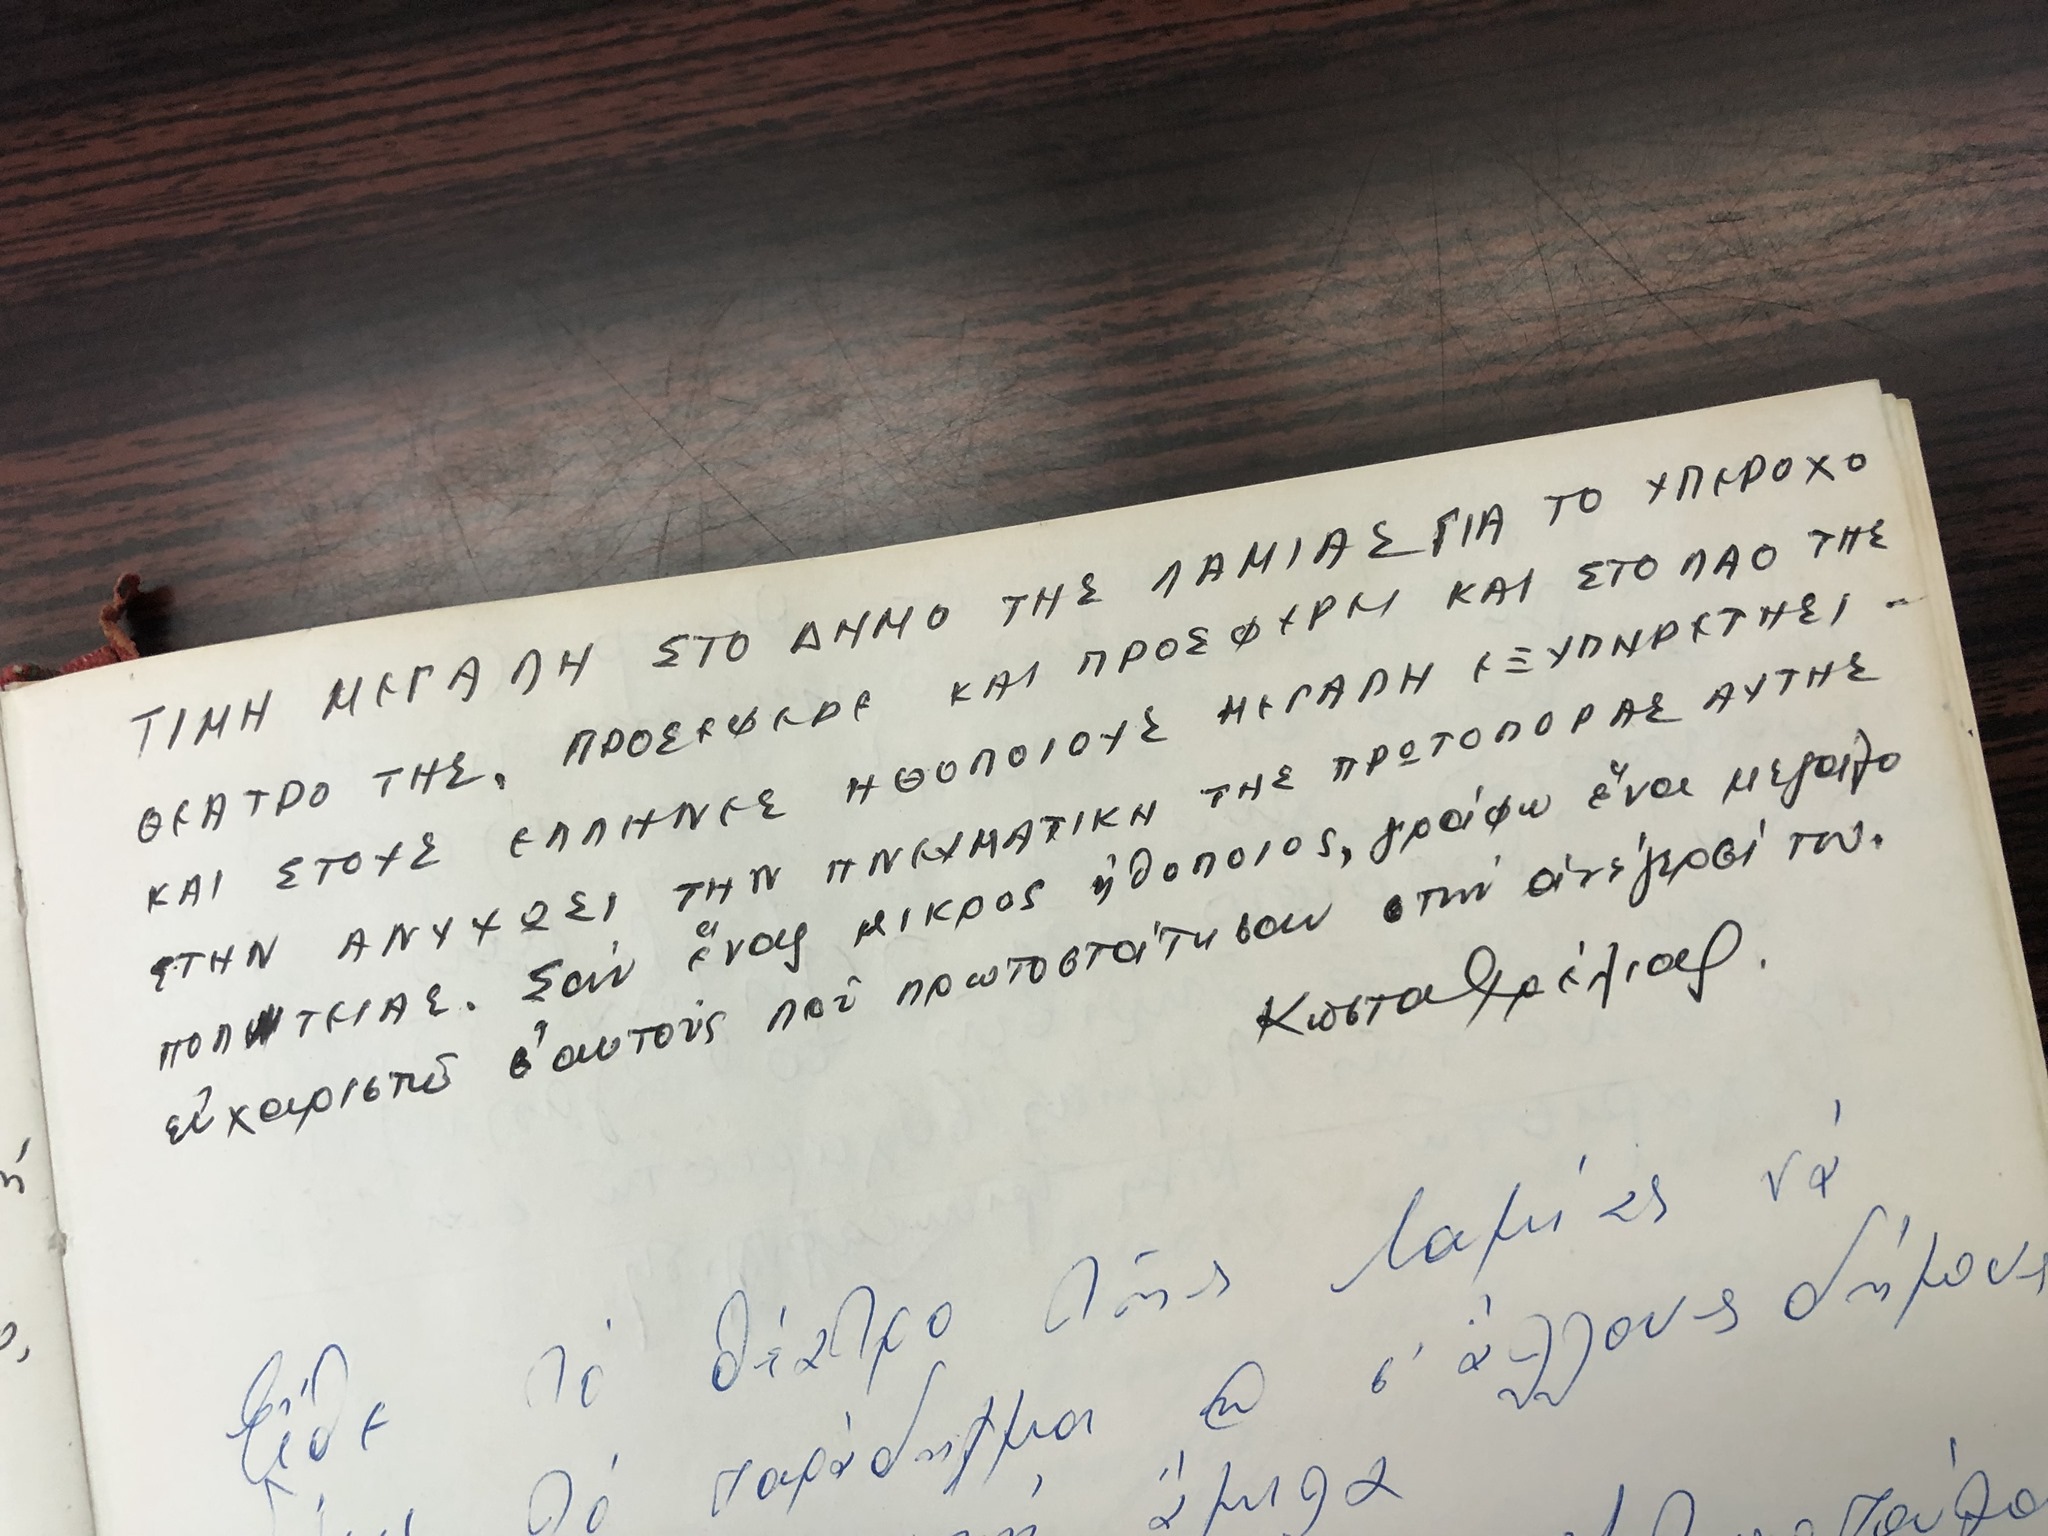 ΤΙΜΗ ΜΕΓΑΛΗ ΣΤΟ ΔΗΜΟ ΤΗΣ ΛΑΜΙΑΣ ΓΙΑ ΤΟ ΥΠΕΡΟΧΟ
ΘΕΑΤΡΟ ΤΗΣ. ΠΡΟΣΕΦΕΡΕ ΚΑΙ ΠΡΟΣΦΕΡΕΙ ΚΑΙ ΣΤΟ ΛΑΟ ΤΗΣ
ΚΑΙ ΣΤΟΥΣ ΕΛΛΗΝΕΣ ΗΘΟΠΟΙΟΥΣ ΜΕΓΑΛΗ ΕΞΥΠΗΡΕΤΗΣΙ -
ΣΤΗΝ ΑΝΥΨΩΣΙ ΤΗΝ ΠΝΕΥΜΑΤΙΚΗ ΤΗΣ ΠΡΩΤΟΠΟΡΑΣ ΑΥΤΗΣ
ΠΟΛΙΤΕΙΑΣ. Σαν ἕνας μικρος ἠθοποιος, γράφω ἕνα μεγάλο
εὐχαριστῶ σ' αυτούς ποὺ πρωτοστάτησαν στην ἀνέγερσί του.
Κώστα
τό θέατρο τῆς Λαμίας νά
τό παράδειγμα σ' ἄλλους δήμους
ἅμιλα